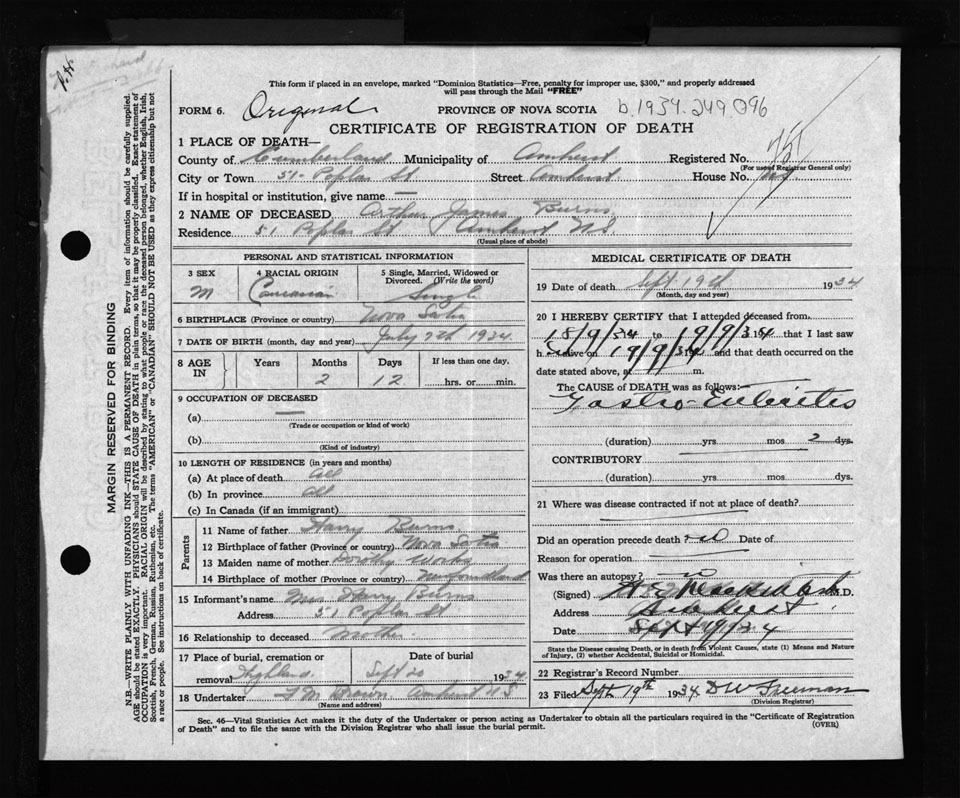 This form if placed in an envelope, marked "Dominion Statistics—Free, penalty for improper use, $300," and properly addressed
will pass through the Mail "FREE"
FORM 6. Original PROVINCE OF NOVA SCOTIA b.1934.249 096
CERTIFICATE OF REGISTRATION OF DEATH
1 PLACE OF DEATH—
County of Cumberland Municipality of Amherst Registered No.
(For use of Registrar General only)
City or Town 51- Poplar St Street Amherst House No.
If in hospital or institution, give name —
2 NAME OF DECEASED Arthur James Burns
Residence 51 Poplar St Amherst N.S.
(Usual place of abode)
PERSONAL AND STATISTICAL INFORMATION
3 SEX M
4 RACIAL ORIGIN Caucasian
5 Single, Married, Widowed or
Divorced. (Write the word)
Single
6 BIRTHPLACE (Province or country) Nova Scotia
7 DATE OF BIRTH (month, day and year) July 7th 1934
8 AGE IN Years Months Days If less than one day,
2 12 hrs. or min.
9 OCCUPATION OF DECEASED
(a) —
(Trade or occupation or kind of work)
(b)
(Kind of industry)
10 LENGTH OF RESIDENCE (in years and months)
(a) At place of death All
(b) In province All
(c) In Canada (if an immigrant)
Parents
11 Name of father Harry Burns
12 Birthplace of father (Province or country) Nova Scotia
13 Maiden name of mother Dorothy
14 Birthplace of mother (Province or country) Newfoundland
15 Informant's name Mrs Harry Burns
Address 51 Poplar St
16 Relationship to deceased Mother
17 Place of burial, cremation or Date of burial
removal Highland Sept 20 1934
18 Undertaker F M Brown Amherst N S
(Name and address)
MEDICAL CERTIFICATE OF DEATH
19 Date of death Sept 19th 1934
(Month, day and year)
20 I HEREBY CERTIFY that I attended deceased from
18/9/34 to 19/9/34 that I last saw
h alive on 19/9/34 and that death occurred on the
date stated above, at m.
The CAUSE of DEATH was as follows:
Gastro-Enteritis
(duration) yrs mos 2 dys.
CONTRIBUTORY
(duration) yrs mos dys.
21 Where was disease contracted if not at place of death?
Did an operation precede death? no Date of
Reason for operation
Was there an autopsy? no
(Signed) M.D.
Address Amherst
Date Sept 19/34
State the Disease causing Death, or in death from Violent Causes, state (1) Means and Nature
of Injury, (2) whether Accidental, Suicidal or Homicidal.
22 Registrars Record Number
23 Filed Sept 19th 1934 D W Freeman
(Division Registrar)
Sec. 46—Vital Statistics Act makes it the duty of the Undertaker or person acting as Undertaker to obtain all the particulars required in the "Certificate of Registration
of Death" and to file the same with the Division Registrar who shall issue the burial permit. (OVER)
MARGIN RESERVED FOR BINDING
N.B.—WRITE PLAINLY WITH UNFADING INK—THIS IS A PERMANENT RECORD. Every item of information should be carefully supplied.
AGE should be stated EXACTLY. PHYSICIANS should STATE CAUSE OF DEATH in plain terms, so that it may be properly classified. Exact statement of
OCCUPATION is very important. RACIAL ORIGIN will be described by stating to what people or race the deceased person belonged, whether English, Irish,
Scottish, French, German, Russian, Ruthenian, etc. The terms "AMERICAN" or "CANADIAN" SHOULD NOT BE USED as they express citizenship but not
a race or people. See instructions on back of certificate.